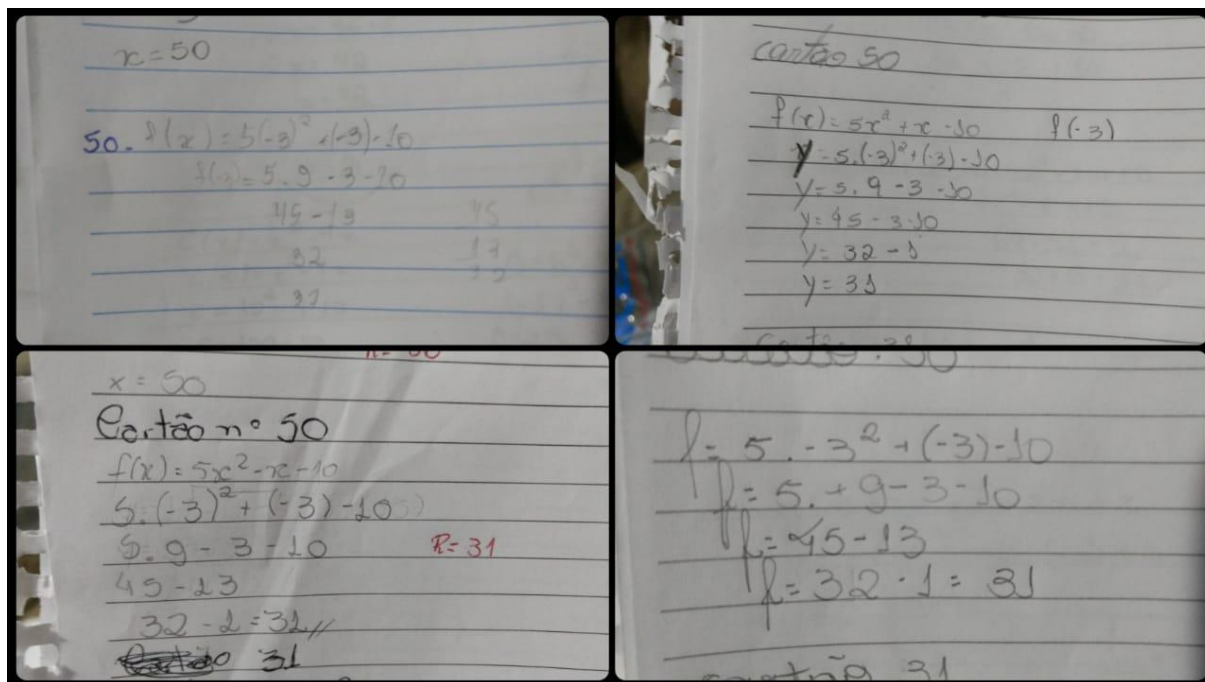 x = 50
50. f(x) = 5(-3)² + (-3) - 10
f(-3) = 5 . 9 - 3 - 10
45 - 13 45
32 13
31
cartão 50
f(x) = 5x² + x - 10 f(-3)
y = 5.(-3)² + (-3) - 10
y = 5. 9 - 3 - 10
y = 45 - 3 - 10
y = 32 - 1
y = 31
x = 50
Cartão nº 50
f(x) = 5x² - x - 10
5.(-3)² + (-3) - 10
5. 9 - 3 - 10 R = 31
45 - 13
32 - 1 = 31 //
31
f = 5. - 3² + (-3) - 10
f = 5. + 9 - 3 - 10
f = 45 - 13
f = 32 - 1 = 31
cartão 31